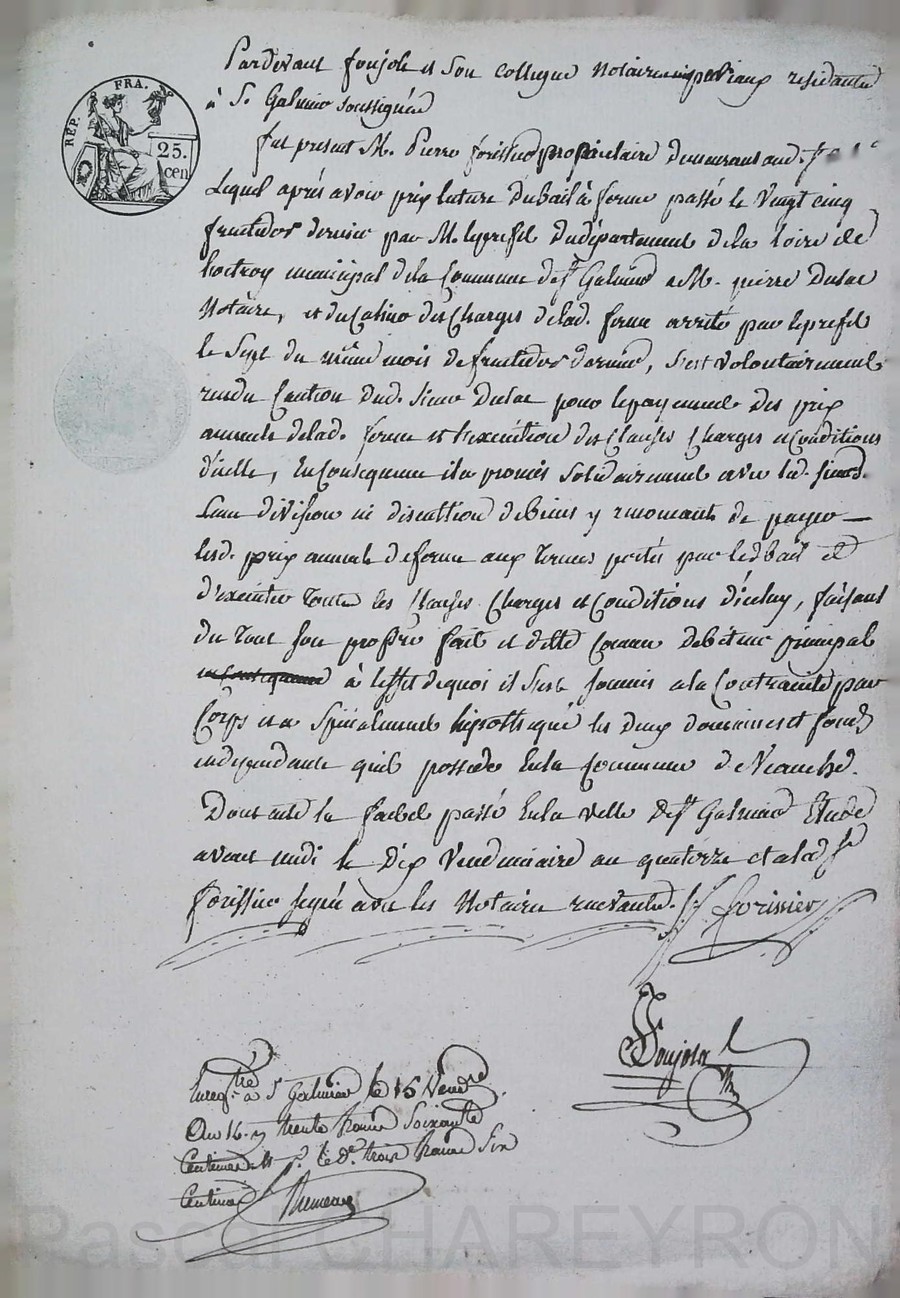 RÉP. FRA.
25.
cen
Pardevant Foujols et Son collegue Notaires impériaux residants
à St. Galmier soussignés
fut present M. Pierre forissier propriétaire demeurant aud. St
Lequel après avoir pris lecture du bail à ferme passé le Vingt cinq
fructidor dernier par M. le prefet du département de la Loire de
L'octroy municipal de la Commune de St Galmier a M. pierre Dulac
Notaire, et du Cahier des Charges de lad. ferme arrêté par le prefet
le Sept du même mois de fructidor dernier, s'est volontairement
rendu Caution dud. Sieur Dulac pour le payement des prix
annuels de lad. ferme et l'exécution des Clauses Charges et Conditions
d'icelle, En Consequence il a promis solidairement avec led. Sieur
Sans division ni discution de biens y renonçants de payer
lesd. prix annuels de ferme aux termes portés par led bail et
d'exécuter toutes les Clauses Charges et Conditions d'icelui, faisant
du tout son propre fait et dette comme debiteur principal
à l'effet de quoi il s'est soumis a la Contrainte par
Corps et a Spécialement hipothequé les deux domaines et fonds
independants qu'il possede En la Commune de Veauche.
Dont acte fait et passé En la ville de St Galmier Etude
avant midi le Dix Vendemiaire an quatorze et a led. Sr
forissier signé avec les Notaires recevants.
forissier
Foujols
Enregtré à St Galmier le 15 Vendre
An 14. y trente francs Soixante
Centimes le De. trois francs Six
Centimes
Pascal CHAREYRON